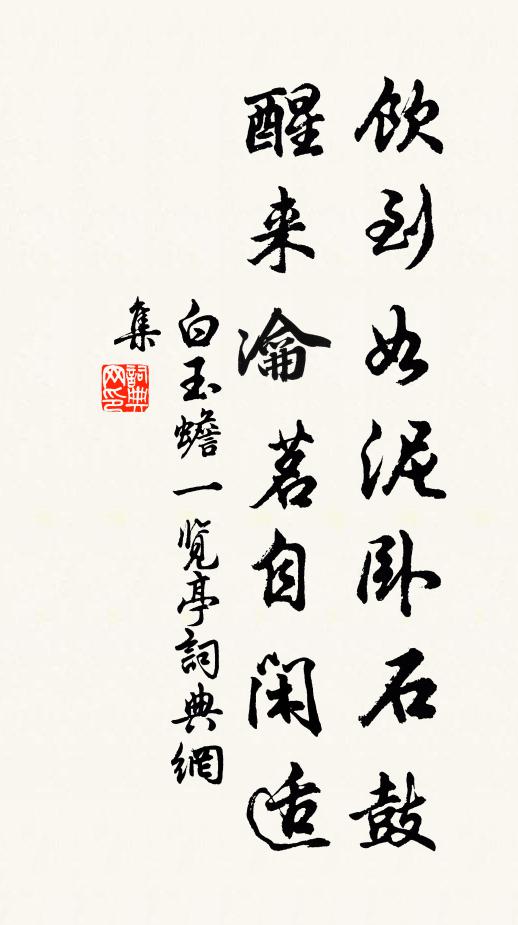 饮到如泥卧石鼓
醒来瀹茗自闲适
白玉蟾一览亭詞典網
集
詞典网印